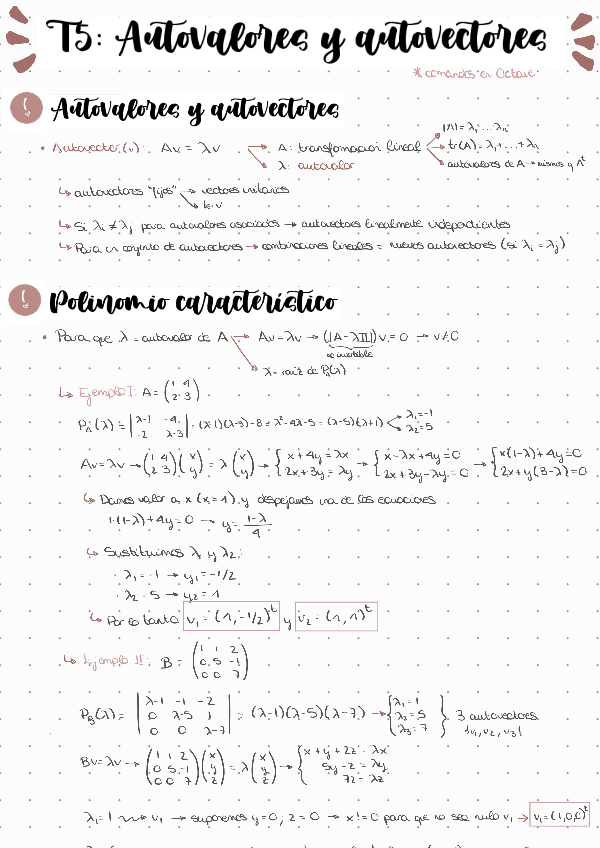 T5: Autovalores y autovectores
* comandos en Octave
! Autovalores y autovectores
• Autovector (v): Av = λv → A: transformación lineal → |A| = λ₁·...·λₙ
tr(A) = λ₁+...+λₙ
autovalores de A → mismos q Aᵗ
→ λ: autovalor
↳ autovectores "fijos" → vectores unitarios
→ k·v
↳ Si λᵢ ≠ λⱼ para autovalores asociados → autovectores linealmente independientes
↳ Para un conjunto de autovectores → combinaciones lineales = nuevos autovectores (si λᵢ = λⱼ)
! Polinomio característico
• Para que λ = autovalor de A → Av = λv → (|A-λII|)v = 0 → v ≠ 0
no invertible
→ λ = raíz de P_A(λ)
↳ Ejemplo I: A = (1 4
2 3)
P_A(λ) = |λ-1 -4
-2 λ-3| = (λ-1)(λ-3)-8 = λ²-4λ-5 = (λ-5)(λ+1) → λ₁=-1
λ₂=5
Av = λv → (1 4
2 3) (x
y) = λ (x
y) → { x+4y = λx
2x+3y = λy → { x-λx+4y = 0
2x+3y-λy = 0 → { x(1-λ)+4y = 0
2x+y(3-λ) = 0
↳ Damos valor a x (x=1) y despejamos una de las ecuaciones
1·(1-λ)+4y = 0 → y = 1-λ / 4
↳ Sustituimos λ₁ y λ₂:
· λ₁ = -1 → y₁ = -1/2
· λ₂ = 5 → y₂ = 1
↳ Por lo tanto v₁ = (1, -1/2)ᵗ y v₂ = (1, 1)ᵗ
↳ Ejemplo II: B = (1 1 2
0 5 -1
0 0 7)
P_B(λ) = |λ-1 -1 -2
0 λ-5 1
0 0 λ-7| = (λ-1)(λ-5)(λ-7) → {λ₁ = 1
λ₂ = 5
λ₃ = 7} 3 autovectores
{v₁, v₂, v₃}
Bv = λv → (1 1 2
0 5 -1
0 0 7) (x
y
z) = λ (x
y
z) → { x+y+2z = λx
5y-z = λy
7z = λz
λ₁ = 1 → v₁ → suponemos y=0, z=0 → x!=0 para que no sea nulo v₁ → v₁ = (1,0,0)ᵗ